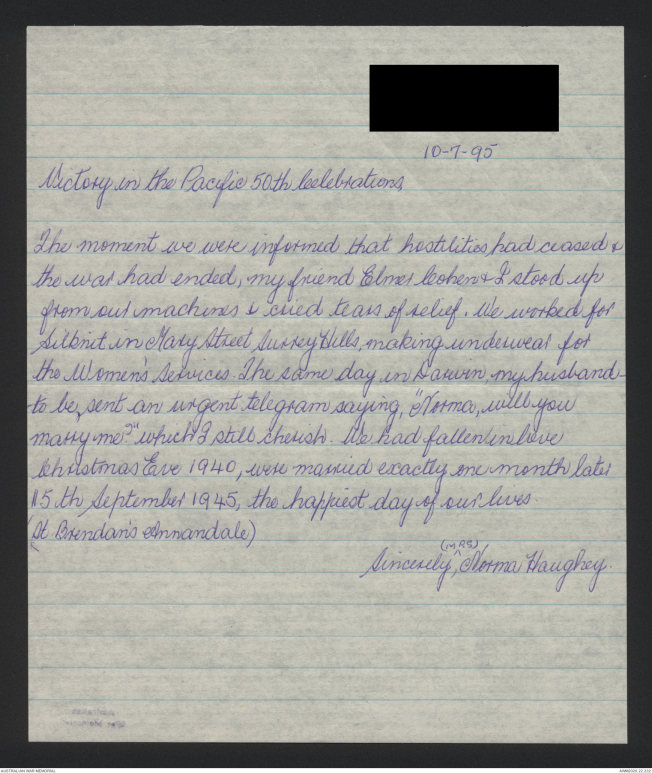 10-7-95
Victory in the Pacific 50th Celebrations,
The moment we were informed that hostilities, had ceased &
the war had ended, my friend Elmer Cohen & I stood up
from our machines & cried tears of relief. We worked for
Silknit in Mary Street Surrey Hills, making underwear for
the Women's Services. The same day in Darwin, my husband-
to be, sent an urgent telegram saying, "Norma, will you
marry me?" which I still cherish. We had fallen in love
Christmas Eve 1940, were married exactly one month later
15th September 1945, the happiest day of our lives.
(St. Brendan's Annandale)
(MRS)
Sincerely, Norma Haughey.
AUSTRALIAN WAR MEMORIAL